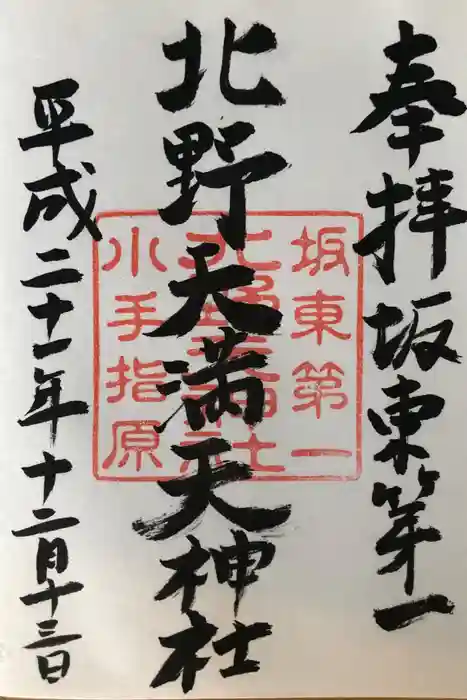 奉拝 坂東第一
北野天満天神社
平成二十一年十二月十三日
坂東第一
小手指原